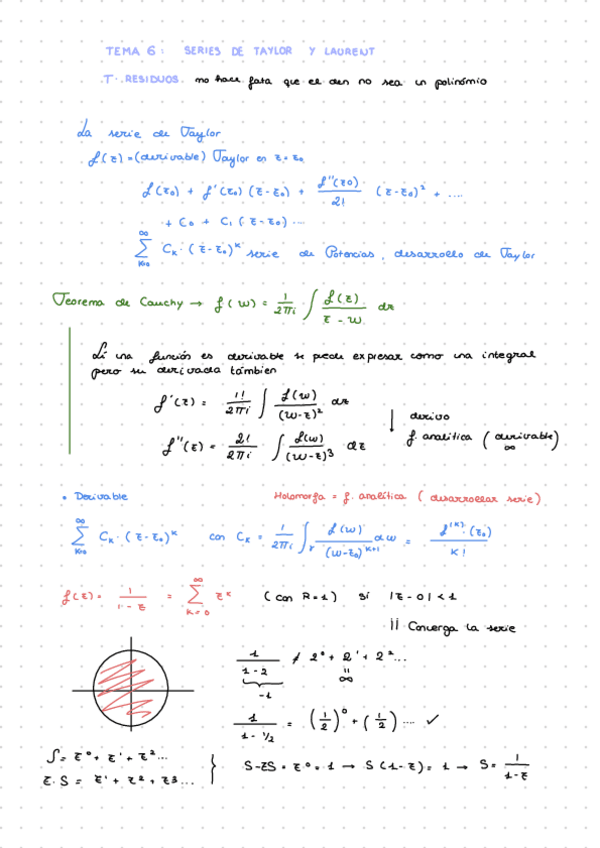 TEMA 6: SERIES DE TAYLOR Y LAURENT
T. RESIDUOS. no hace fata que el den no sea un polinómio
La serie de Taylor
f(z) = (derivable) Taylor en z = z₀
f(z₀) + f'(z₀)(z-z₀) + f''(z₀)/2! (z-z₀)² + ....
+ C₀ + C₁(z-z₀) ....
∞ ∑ k=0 Cₖ·(z-z₀)ᵏ serie de Potencias, desarrollo de Taylor
Teorema de Cauchy → f(w) = 1/2πi ∫ f(z)/z-w dz
Si una función es derivable se puede expresar como una integral
pero su derivada también
f'(z) = 1!/2πi ∫ f(w)/(w-z)² dz
f''(z) = 2!/2πi ∫ f(w)/(w-z)³ dz
derivo
f. analítica (derivable) ∞
• Derivable
Holomorfa = f. analítica (desarrollar serie)
∞ ∑ k=0 Cₖ·(z-z₀)ᵏ con Cₖ = 1/2πi ∫γ f(w)/(w-z₀)ᵏ⁺¹ dw = f⁽ᵏ⁾(z₀)/k!
f(z) = 1/1-z = ∞ ∑ k=0 zᵏ (con R=1) si |z-0|<1
|| Converga la serie
1/1-2 ≠ 2⁰ + 2¹ + 2²...
-1
||
∞
1/1-1/2 = (1/2)⁰ + (1/2) .... ✓
S = z⁰ + z¹ + z²...
z·S = z¹ + z² + z3...
S-zS = z⁰ = 1 → S(1-z) = 1 → S = 1/1-z